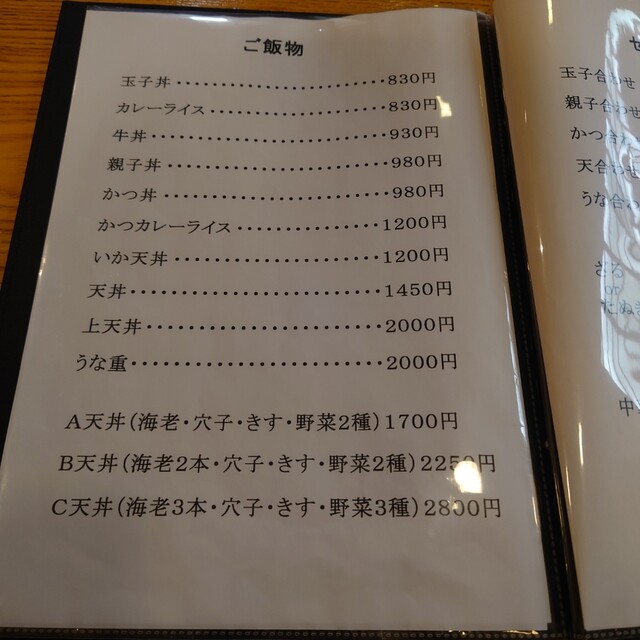 ご飯物
玉子丼・・・・・・・・・・・・・・・・・・・・・・・・830円
カレーライス・・・・・・・・・・・・・・・・・・・・830円
牛丼・・・・・・・・・・・・・・・・・・・・・・・・・・930円
親子丼・・・・・・・・・・・・・・・・・・・・・・・・980円
かつ丼・・・・・・・・・・・・・・・・・・・・・・・・980円
かつカレーライス・・・・・・・・・・・・・・・1200円
いか天丼・・・・・・・・・・・・・・・・・・・・・・1200円
天丼・・・・・・・・・・・・・・・・・・・・・・・・・・1450円
上天丼・・・・・・・・・・・・・・・・・・・・・・・・2000円
うな重・・・・・・・・・・・・・・・・・・・・・・・・2000円
A天丼(海老・穴子・きす・野菜2種)1700円
B天丼(海老2本・穴子・きす・野菜2種)2250円
C天丼(海老3本・穴子・きす・野菜3種)2800円
玉子合わせ
親子合わせ
かつ合わ
天合わせ
うな合わ
ざる
or
たぬき
中